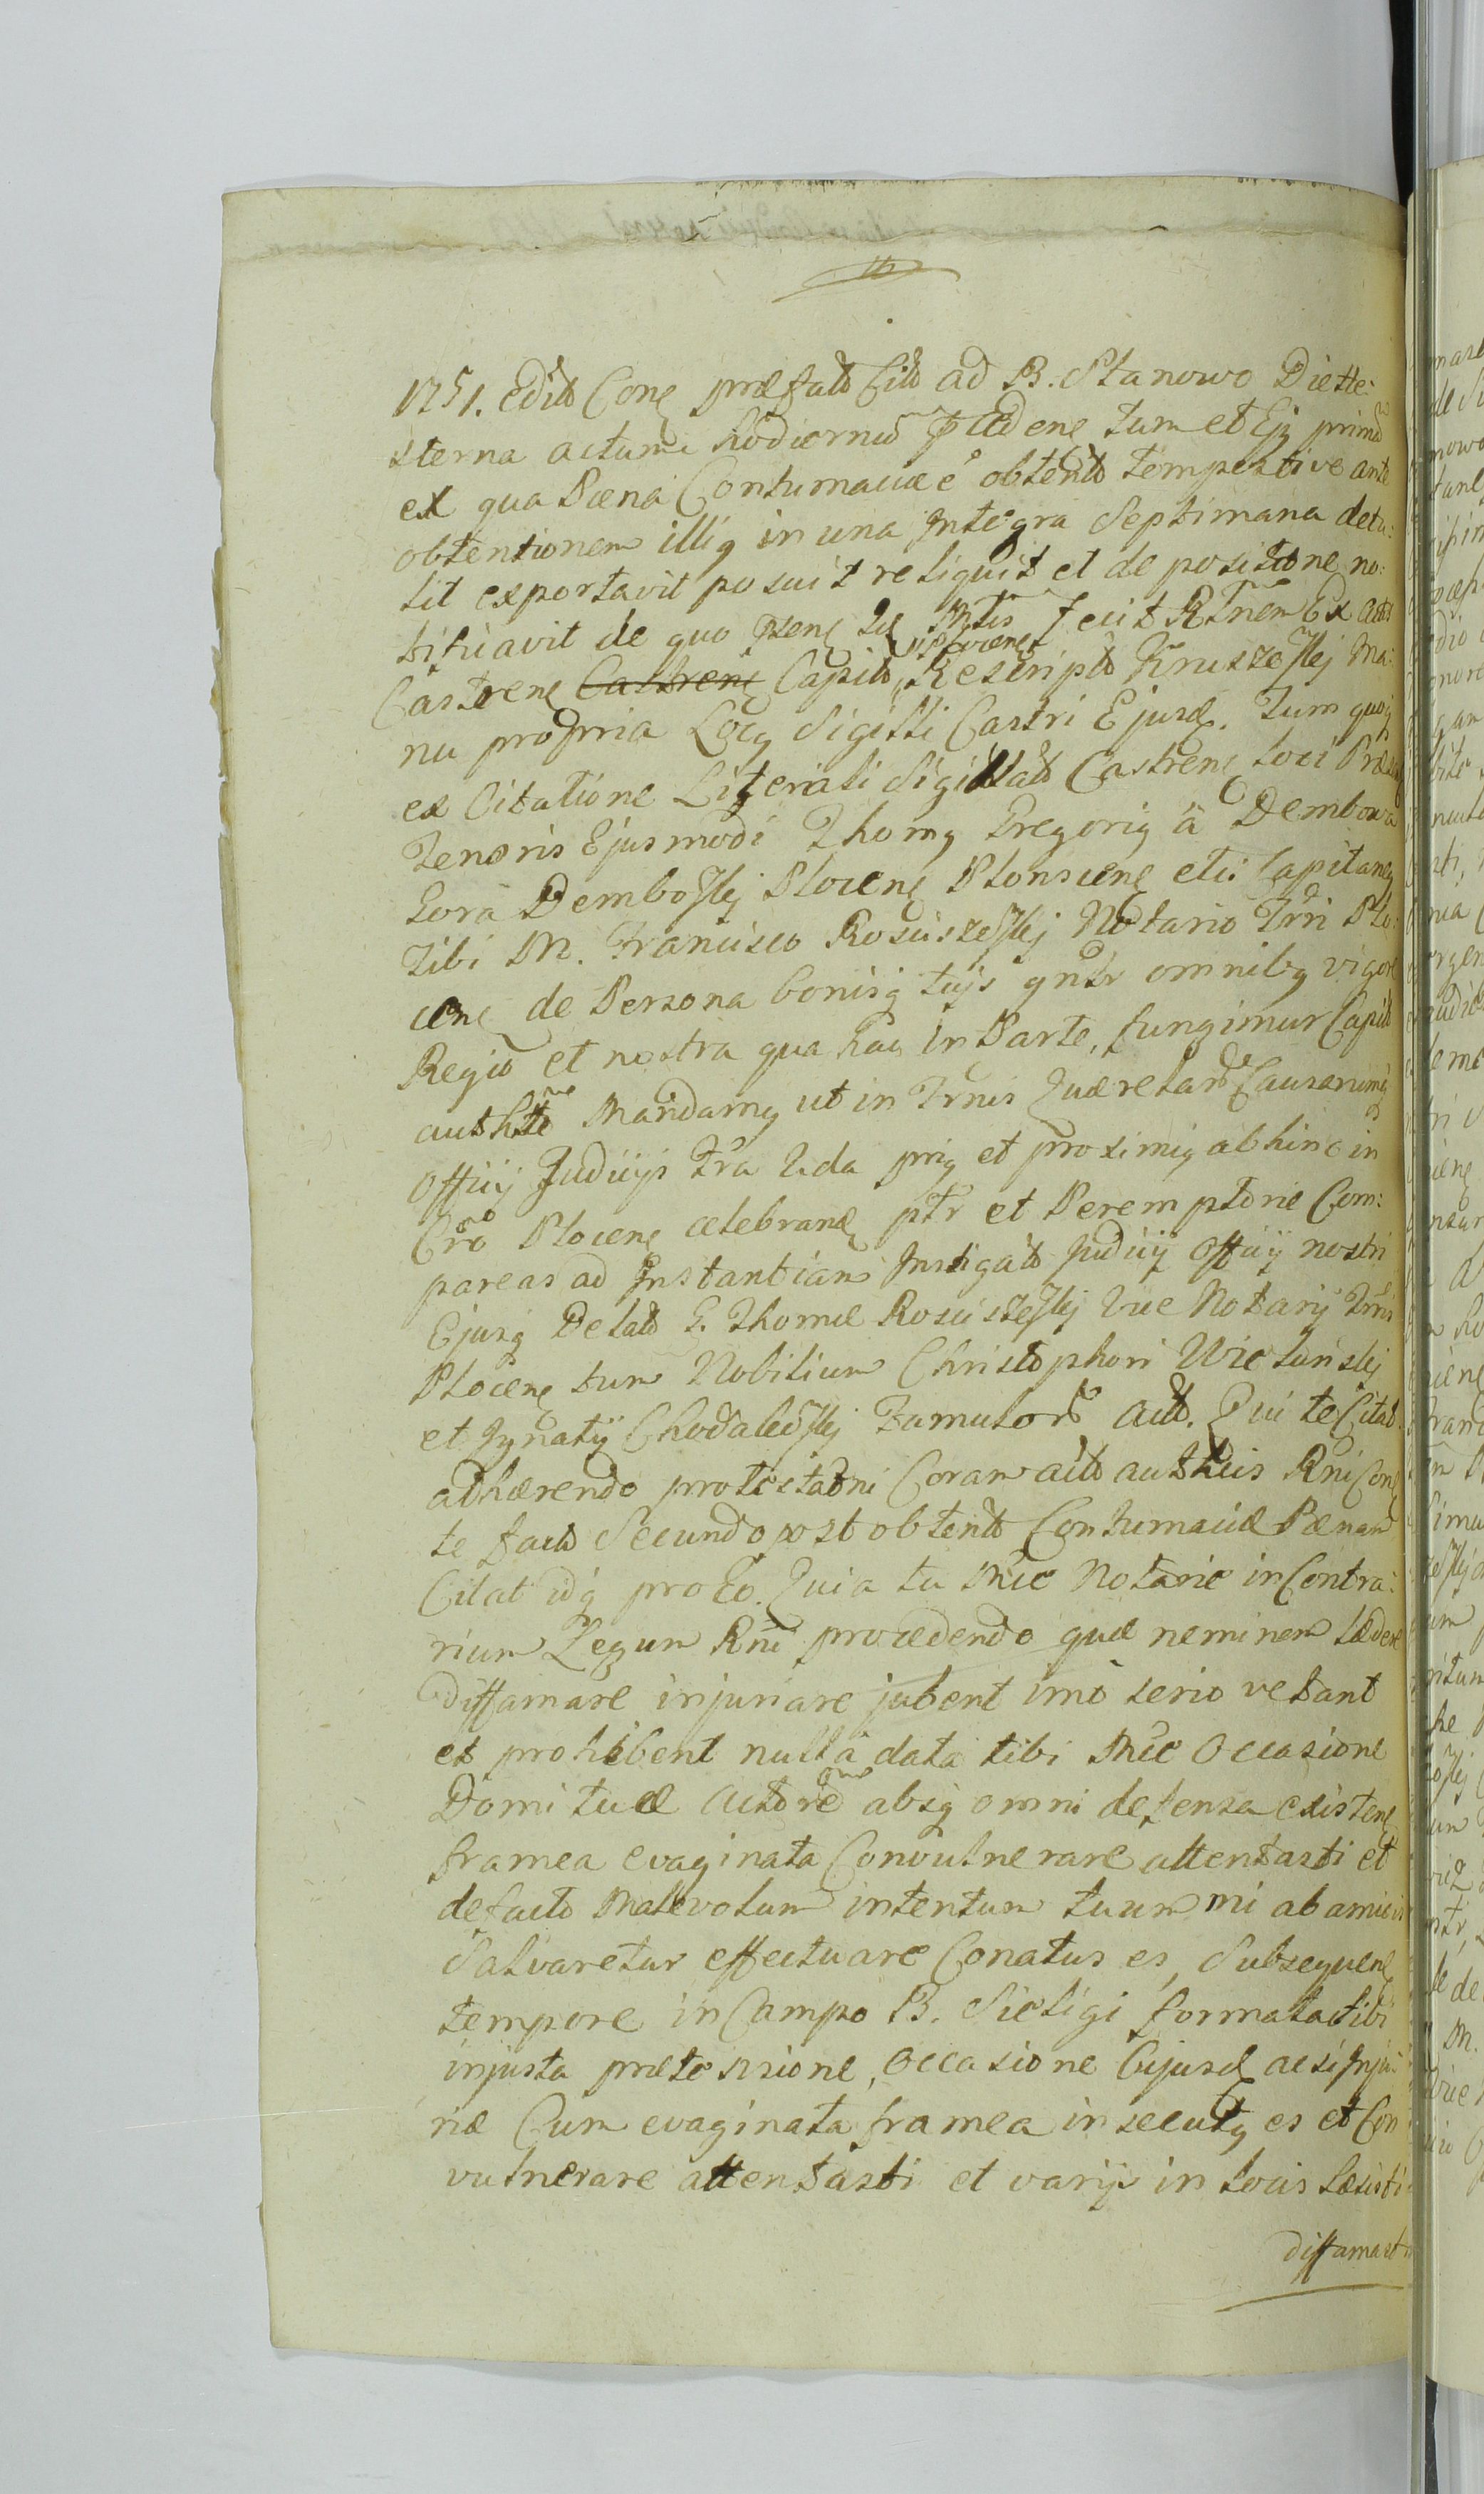 1751. edito Cone præfato Cito ad B. Stanowo Die He:
sterna actum hodiernum præcedene tum et Ejq prima
ex qua Pæna Contumaciæ e obtento tempestive ante
obtentionem illiq in una Integra Septimana detu:
lit exportavit posuit reliquit et de positione no:
tificavit de quo Fecit Rtnem Ex actis
Castrene Castrene Capito Plocene Rescripto Kruszeskj Ma:
nu propria Locq Sigilli Castri Ejusd. Tum quoq
ex Citatione Literali Sigillato Castrene Loci
Tenoris Ejusmodi Thomq Gregoriq à Dembowa
Gora Demboskj Plocene Plonscene etc: Capitaneq
Tibi M. Francisco Rosciszeskj Notario Trri Plo:
cene de Persona bonisq tuis gnlr omnibq vigore
Regia et nostra qua hac in Parte, fungimur Capito
authtte Mandamq ut in Trmis Querelar Causarumq
Officij Judicijs Fra 2da priq et proximiq abhinc in
Cro Plocene celebrand ptr et Peremptorie Com:
pareas ad Instantiam Instigato Judicij Officij nostri
Ejusq Delato G. Thomæ Rosciszeskj Vice Notarij Trris
Plocene tum Nobilium Christophori Wieluńskj
et Ignatij Chodaleoskj Famulor Acto. Qui te Citat
adhærendo protestaoni Coram acto authcis Rni Cone
te facta Secundo post obtento Contumaciæ Pænam
Citat idq pro Eo. Quia tu Mce Notarie in Contra:
rium Legum Rni procedendo quæ neminem lædere
diffamare injuriare jubent imò serio vetant
et prohibent nullâ datâ tibi Mce Occasione
Domi tuæ Actore absq omni defensa existene
framea evaginata Convulnerare attentasti et
de facto Malevolum intentum tuum ni ab amicis
Salvaretur effectuare Conatus es, Subsequene
tempore in Campo B. Sieligi formata tibi
injusta prætensione, occasione Cujusd acsi Inju:
riæ Cum evaginata framea insecutq es et Con
vulnerare attentasti et varijs in locis læsisti
diffamasti